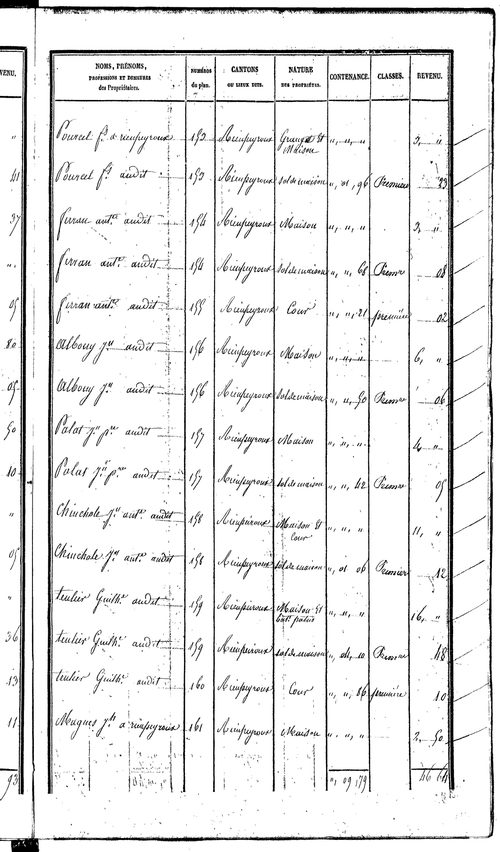 VENU.
NOMS, PRÉNOMS,
PROFESSIONS ET DEMEURES
des Propriétaires.
NUMÉROS
du plan.
CANTONS
OU LIEUX DITS.
NATURE
DES PROPRIÉTÉS.
CONTENANCE.
CLASSES.
REVENU.
" Pourcel fs à rieupeyroux 153 Rieupeyroux Grange et Maison " " " 3, "
41 Pourcel fs audit 153 Rieupeyroux sol de maison " 01 96 Premiere 23
37 ferran ant.e audit 154 Rieupeyroux Maison " " " 3, "
" ferran ant.e audit 154 Rieupeyroux sol de maison " " 68 Premre 08
05 ferran ant.e audit 155 Rieupeyroux Cour " " 21 première 02
80 Albouy jn audit 156 Rieupeyroux Maison " " " 6, "
05 Albouy jn audit 156 Rieupeyroux sol de maison " " 50 Premre 06
50 audit 157 Rieupeyroux Maison " " " 4, "
10 audit 157 Rieupeyroux sol de maison " " 42 Premre 05
" Chinchole jn ant.e audit 158 Rieupeyroux Maison et Cour " " " 11, "
05 Chinchole jn ant.e audit 158 Rieupeyroux sol de maison " 01 06 Premiere 12
" teulier Guilh.e audit 159 Rieupeyroux Maison et " " " 16, "
36 teulier Guilh.e audit 159 Rieupeyroux sol de maison " 04 10 Premre 48
13 teulier Guilh.e audit 160 Rieupeyroux Cour " " 86 première 10
11 à rieupeyroux 161 Rieupeyroux Maison " " " 2, 50
93 " 09 79 46 64